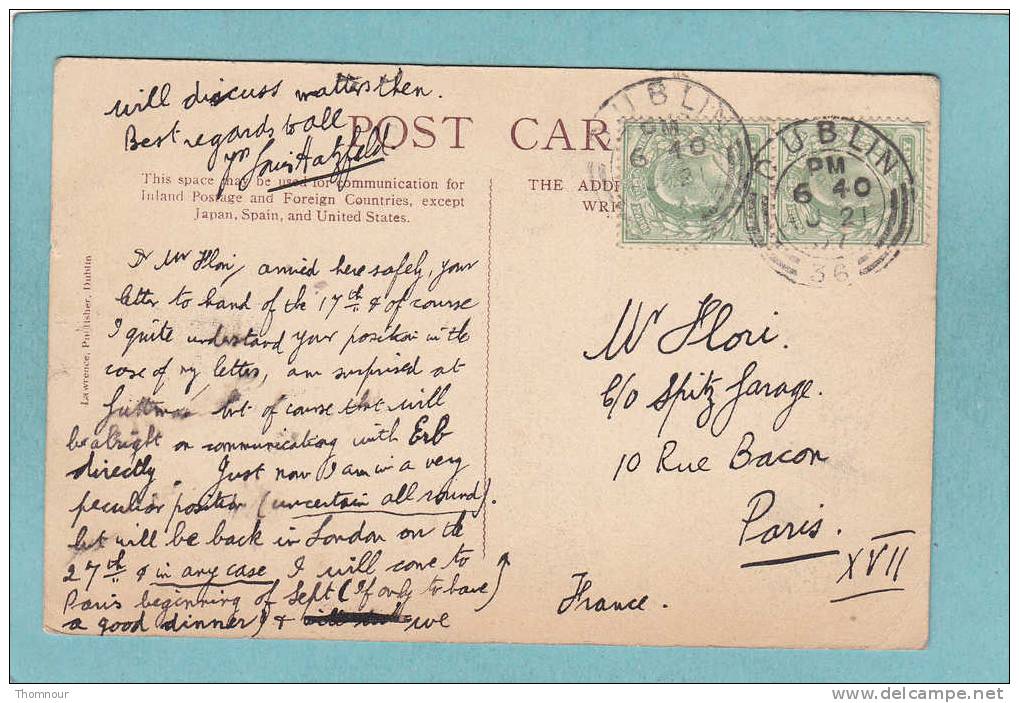 will discuss matters then.
Best regards to all
yrs Louis Hatzfeld
POST CAR
This space may be used for communication for
Inland Postage and Foreign Countries, except
Japan, Spain, and United States.
THE ADD
WRI
Lawrence, Publisher, Dublin
Dr Mr Flori, arrived here safely, your
letter to hand of the 17th & of course
I quite understand your position in the
case of my letter, am surprised at
but of course that will
be alright on communicating with Erb
directly. Just now I am in a very
peculiar position (uncertain all round).
but will be back in London on the
27th & in any case I will come to
Paris beginning of Sept (If only to have
a good dinner) & we
DUBLIN
PM
6 40
DUBLIN
PM
6 40
36
Mr Flori.
c/o Spitz Garage.
10 Rue Bacon
Paris.
XVII
France.
Thomnour
www.delcampe.net